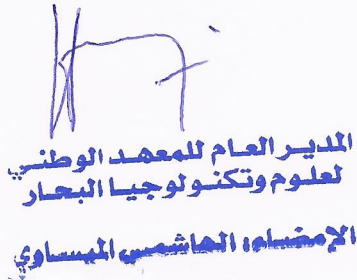 المدير العام للمعهد الوطني
لعلوم وتكنولوجيا البحار
الإمضاء: الهاشمي الميساوي